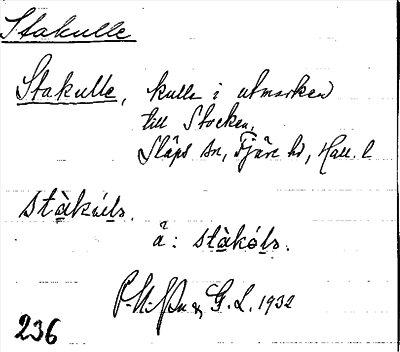 Stakulle
Stakulle, kulle i utmarken
till Stocken,
Släps sn, Fjäre hd, Hall. l
stàkúlə.
ä: stàkólə.
G. L. 1932
236